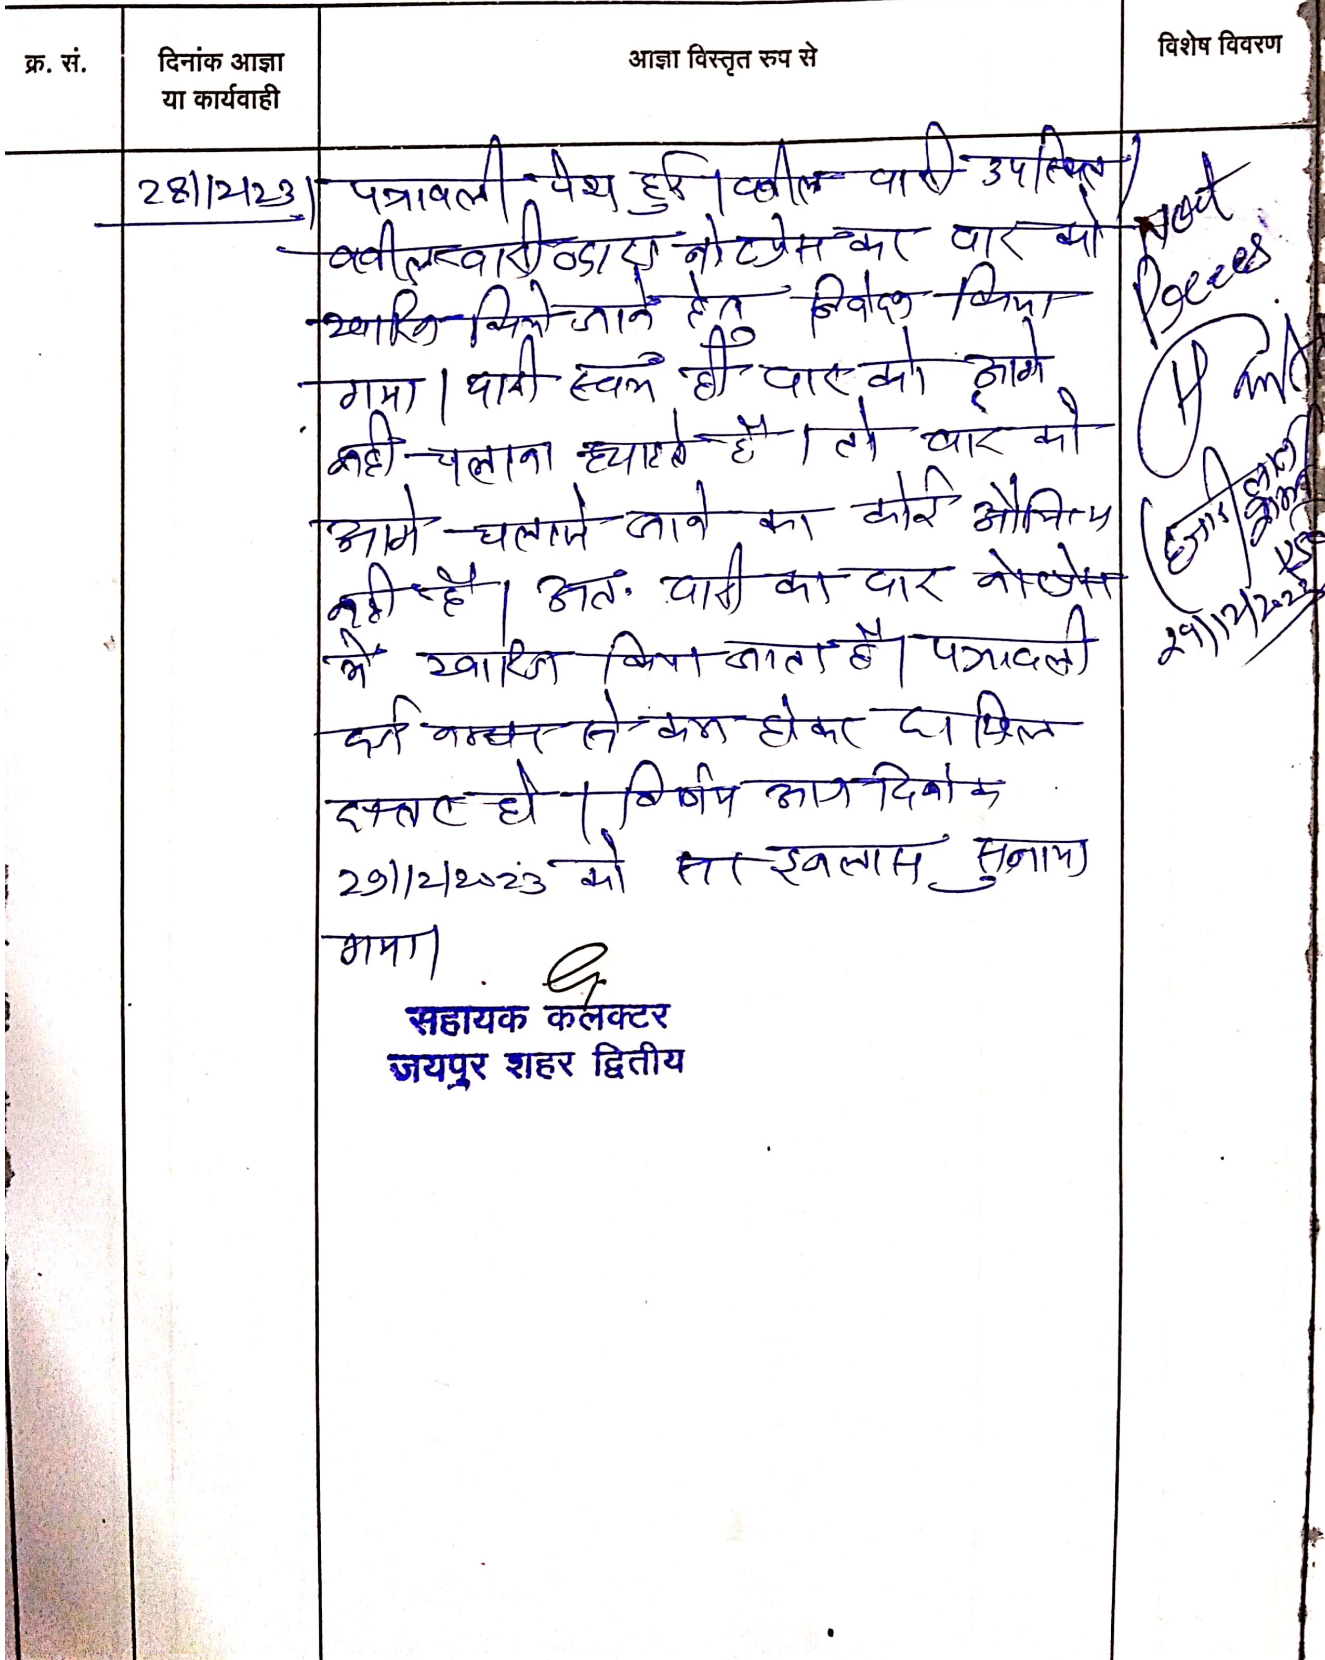 क्र. सं.
दिनांक आज्ञा
या कार्यवाही
आज्ञा विस्तृत रुप से
विशेष विवरण
28/12/23
पत्रावली पेश हुई। वकील वादी उपस्थित।
वकील वादी द्वारा नोटप्रेस कर वाद को
खारिज किये जाने हेतु निवेदन किया
गया। वादी स्वयं ही वाद को आगे
नही चलाना चाहते है। तो वाद को
आगे चलाये जाने का कोई औचित्य
नही है। अतः वादी का वाद नोटप्रेस
में खारिज किया जाता है। पत्रावली
दर्ज नम्बर से कम होकर दाखिल
दफ्तर हो। निर्णय आज दिनांक
29/12/2023 को सरे इजलास सुनाया
गया।
सहायक कलक्टर
जयपुर शहर द्वितीय
29/12/2023